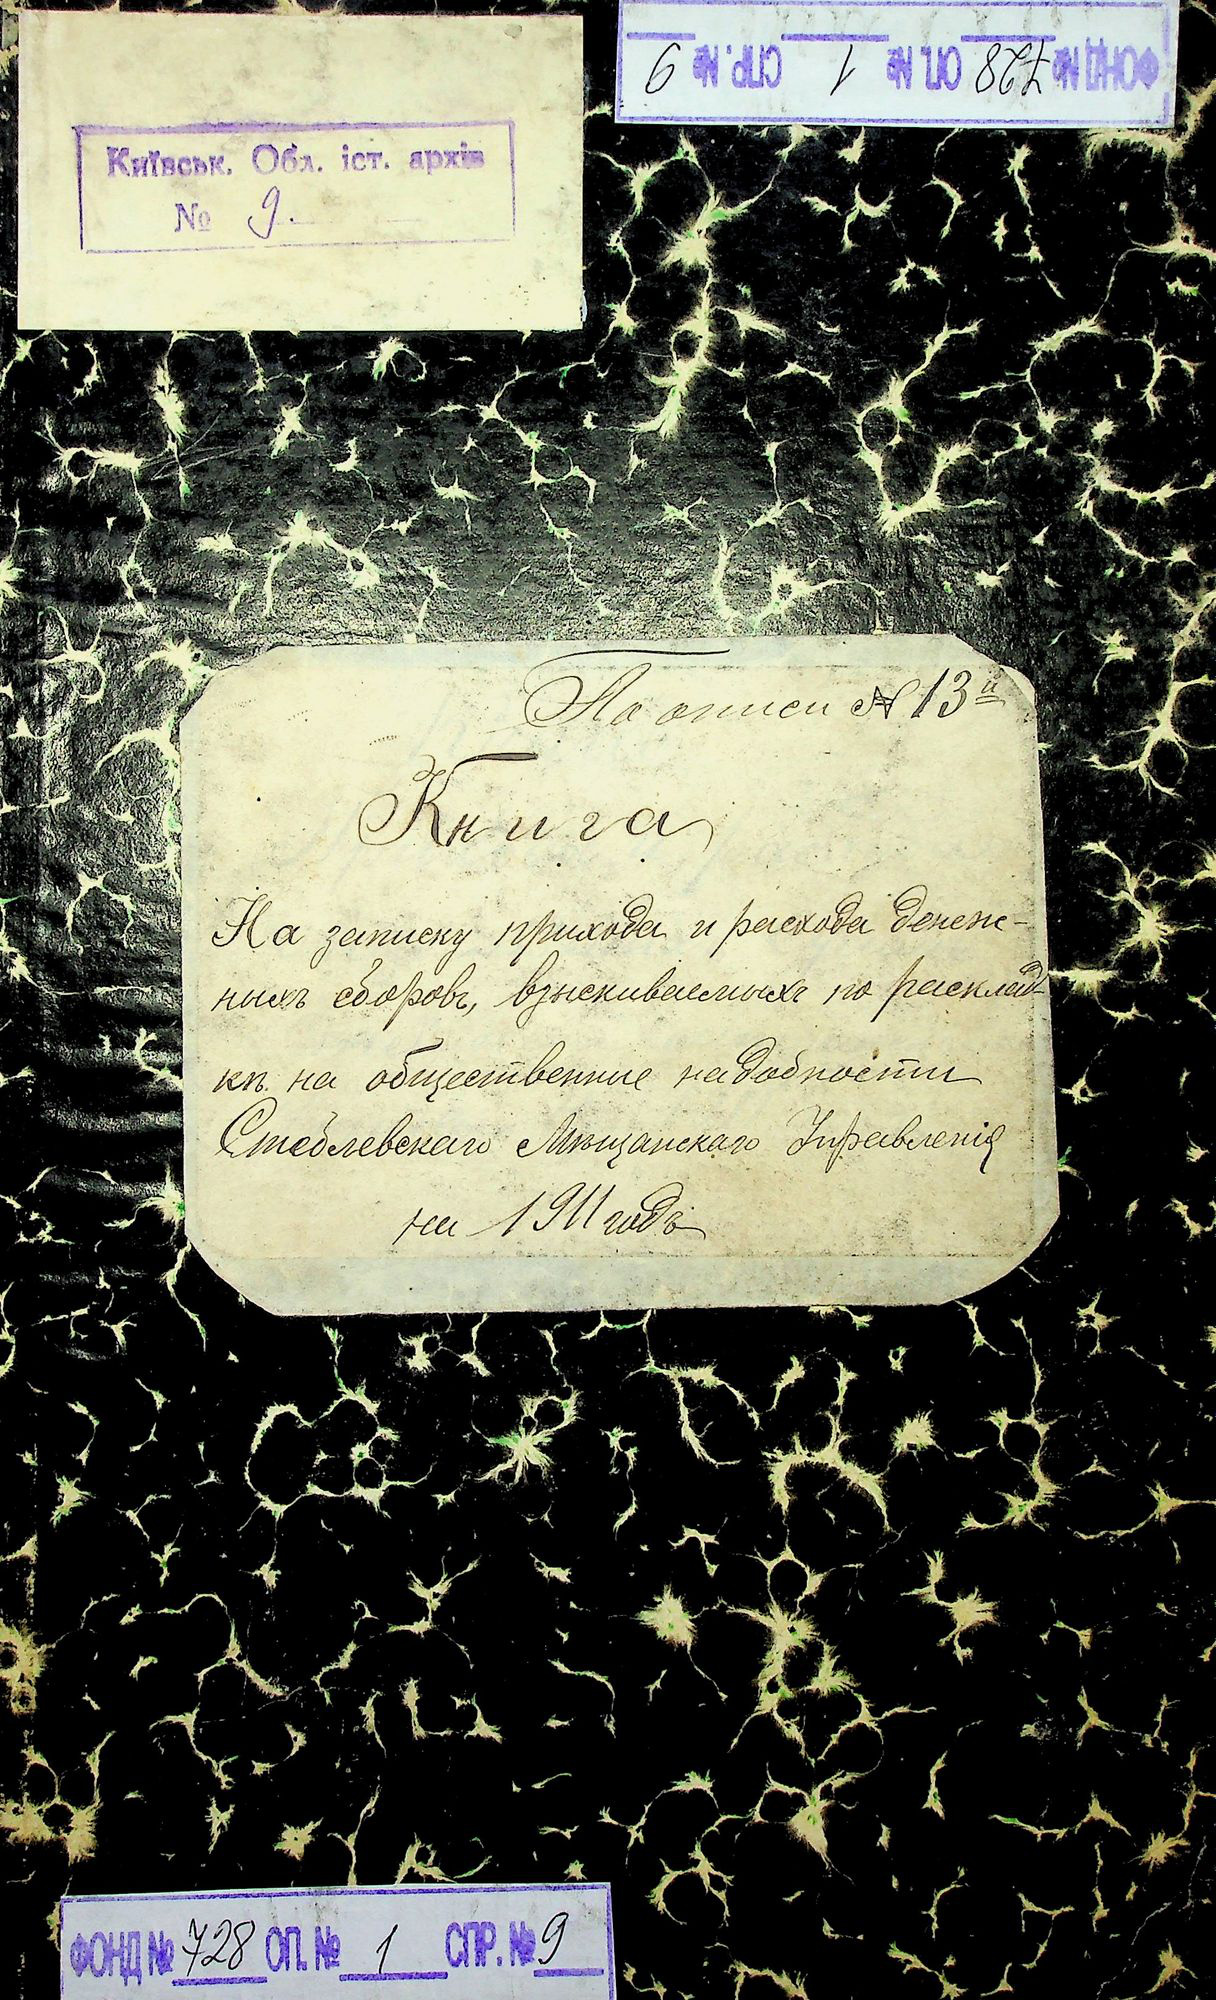 Київськ. Обл. іст. архів
№ 9.
ФОНД № 728 ОП. № 1 СПР. № 9
По описи № 13й
Книга
На записку прихода и расхода денеж-
ныхъ сборовъ, взыскиваемыхъ по расклад-
кѣ на общественные надобности
Стеблевскаго Мѣщанскаго Управленія
на 1911 годъ
ФОНД № 728 ОП. № 1 СПР. № 9